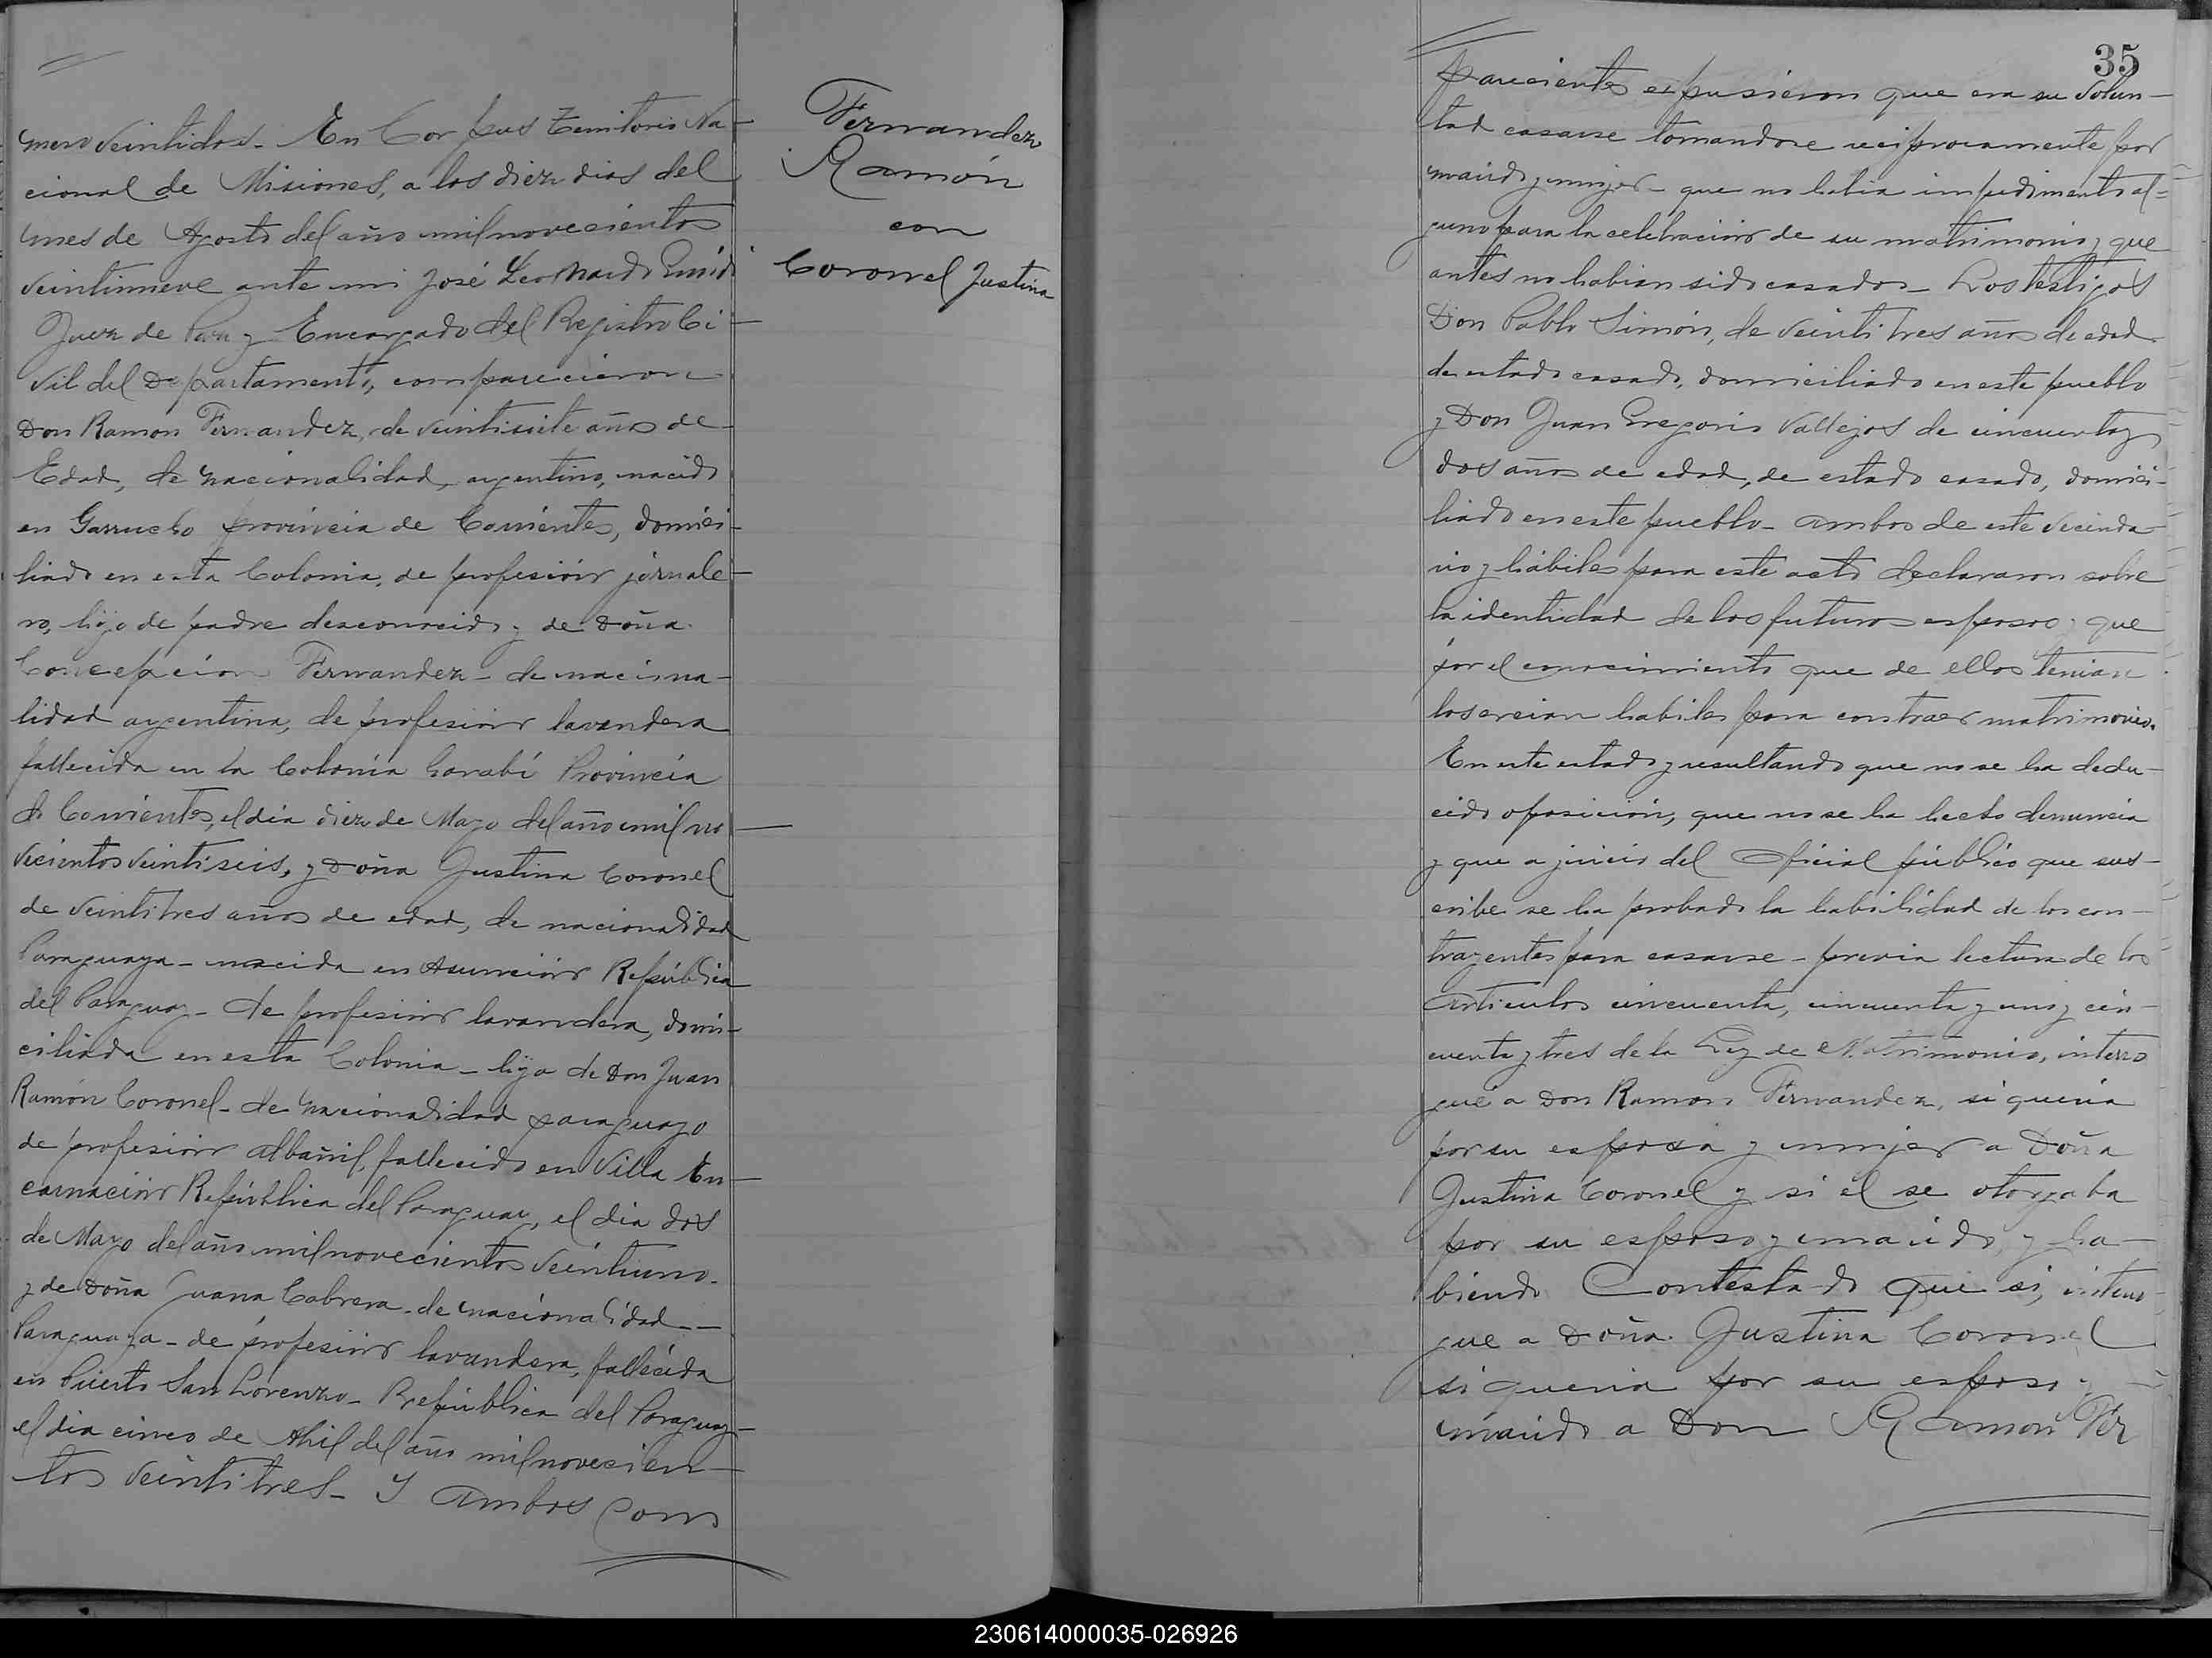 mero veintidos. En Corpus Territorio Na-
cional de Misiones, a los diez dias del
mes de Agosto del año mil novecientos
veintinueve ante mi José Leonardo
Juez de Paz y Encargado del Registro Ci-
vil del Departamento, comparecieron
Don Ramon Fernandez, de veintisiete años de
Edad, de nacionalidad, argentino, nacido
en Garrucho provincia de Corrientes, domici-
liado en esta Colonia, de profesión jornale-
ro, hijo de padre desconocido y de Doña
Concepcion Fernandez - de naciona-
lidad argentina, de profesión lavandera
fallecida en la Colonia Garabí Provincia
de Corrientes, el dia diez de Mayo del año mil no-
vecientos veintiseis, y Doña Justina Coronel
de veintitres años de edad, de nacionalidad
Paraguaya - nacida en Asunción República
del Paraguay - de profesión lavandera, domi-
ciliada en esta Colonia - hija de Don Juan
Ramón Coronel - de nacionalidad paraguayo
de profesión albañil, fallecido en Villa En-
carnación República del Paraguay, el dia dos
de Mayo del año mil novecientos veintiuno -
y de Doña Juana Cabrera - de nacionalidad -
Paraguaya - de profesión lavandera, fallecida
en Puerto San Lorenzo - República del Paraguay -
el dia cinco de Abril del año mil novecien-
tos veintitres - Y ambos com
Fernandez
Ramón
con
Coronel Justina
35
parecientes expusieron que era su volun-
tad casarse tomandose reciprocamente por
marido y mujer - que no habia impedimento al-
guno para la celebración de su matrimonio y que
antes no habian sido casados - Los testigos
Don Pablo Simón, de veintitres años de edad
de estado casado, domiciliado en este pueblo
y Don Juan Gregorio Vallejos de cincuenta y
dos años de edad, de estado casado, domici-
liado en este pueblo - ambos de este vecinda-
rio y hábiles para este acto declararon sobre
la identidad de los futuros esposos y que
por el conocimiento que de ellos tenian
los creian habiles para contraer matrimonio.
En este estado y resultando que no se ha dedu-
cido oposición, que no se ha hecho denuncia
y que a juicio del Oficial público que sus-
cribe se ha probado la habilidad de los con-
trayentes para casarse - previa lectura de los
articulos cincuenta, cincuenta y uno y cin-
cuenta y tres de la Ley de Matrimonio, interro
gué a Don Ramon Fernandez, si queria
por su esposa y mujer a Doña
Justina Coronel y si él se otorgaba
por su esposo y marido, y ha-
biendo Contestado que si, interro-
gue a Doña Justina Coronel
si queria por su esposo y
marido a Don Ramón Fer
230614000035-026926